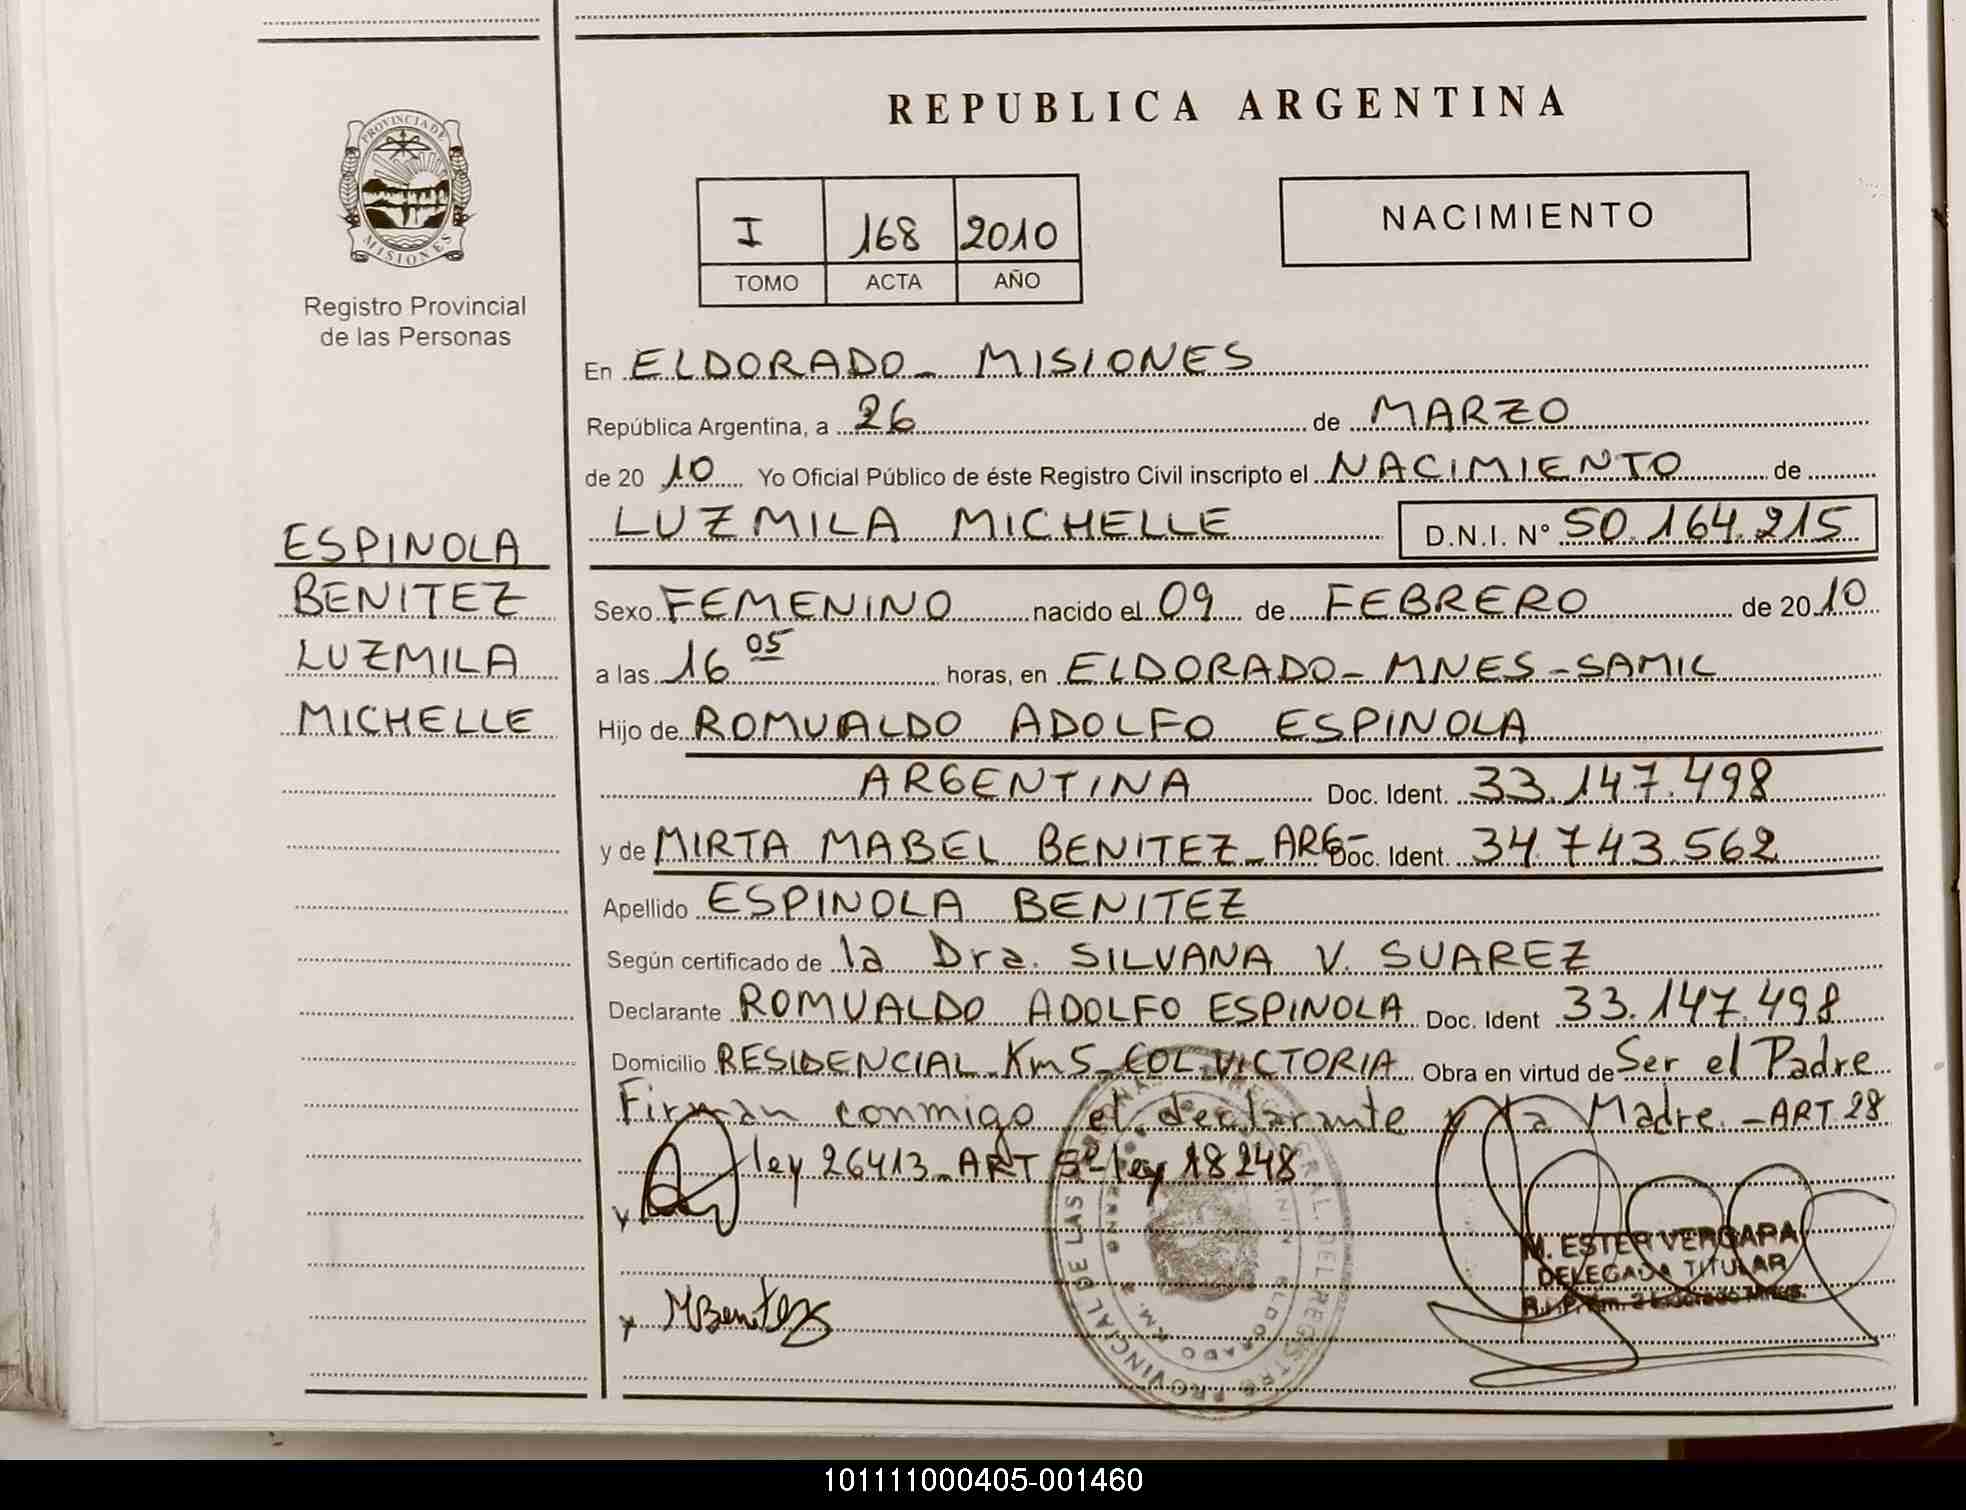 REPUBLICA ARGENTINA
PROVINCIA DE
MISIONES
Registro Provincial
de las Personas
I 168 2010
TOMO ACTA AÑO
NACIMIENTO
ESPINOLA
BENITEZ
LUZMILA
MICHELLE
En ELDORADO - MISIONES
República Argentina, a 26 de MARZO
de 20 10 Yo Oficial Público de éste Registro Civil inscripto el NACIMIENTO de
LUZMILA MICHELLE D.N.I. Nº 50.164.215
Sexo FEMENINO nacido el 09 de FEBRERO de 20 10
a las 16 05 horas, en ELDORADO - MNES - SAMIC
Hijo de ROMUALDO ADOLFO ESPINOLA
ARGENTINA Doc. Ident. 33.147.498
y de MIRTA MABEL BENITEZ - ARG- Doc. Ident. 34.743.562
Apellido ESPINOLA BENITEZ
Según certificado de la Dra. SILVANA V. SUAREZ
Declarante ROMUALDO ADOLFO ESPINOLA Doc. Ident 33.147.498
Domicilio RESIDENCIAL - Km 5 - COL. VICTORIA Obra en virtud de Ser el Padre
Firman conmigo el declarante y la Madre. - ART. 28
ley 26413 - ART 5º ley 18248
M. ESTER VERGARA
DELEGADA TITULAR
MBenitez
101111000405-001460